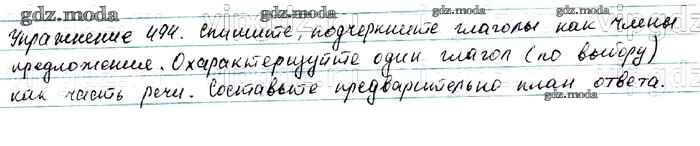 Упражнение 494. Спишите, подчеркните глаголы как члены
предложение. Охарактеризуйте один глагол (по выбору)
как часть речи. Составьте предварительно план ответа.
gdz.moda
gdz.moda
gdz.moda
gdz.moda
gdz.moda